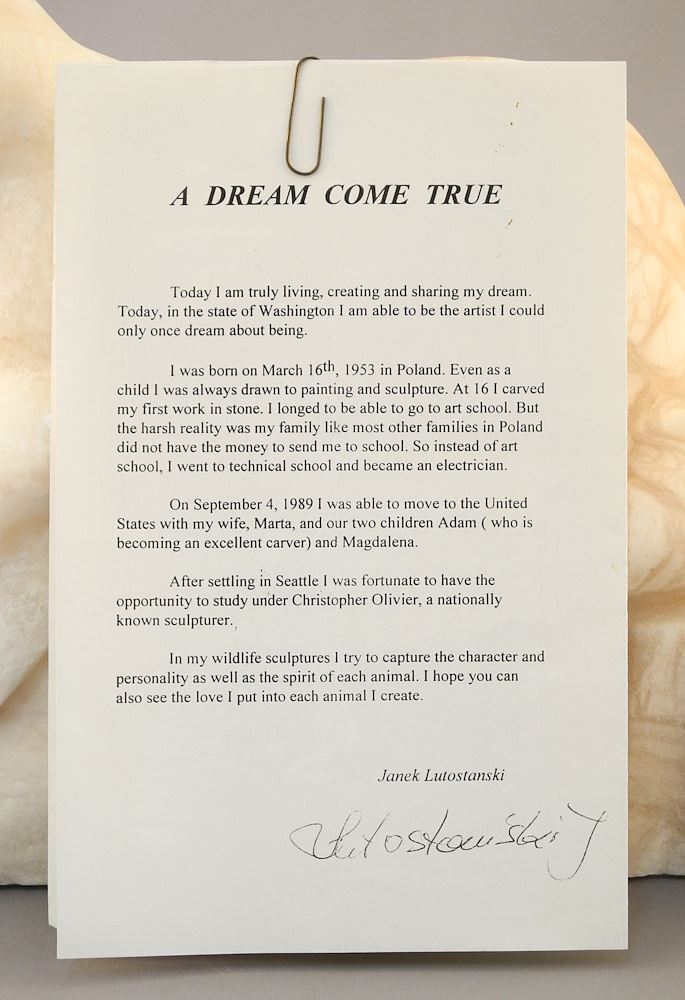 A DREAM COME TRUE
Today I am truly living, creating and sharing my dream.
Today, in the state of Washington I am able to be the artist I could
only once dream about being.
I was born on March 16th, 1953 in Poland. Even as a
child I was always drawn to painting and sculpture. At 16 I carved
my first work in stone. I longed to be able to go to art school. But
the harsh reality was my family like most other families in Poland
did not have the money to send me to school. So instead of art
school, I went to technical school and became an electrician.
On September 4, 1989 I was able to move to the United
States with my wife, Marta, and our two children Adam ( who is
becoming an excellent carver) and Magdalena.
After settling in Seattle I was fortunate to have the
opportunity to study under Christopher Olivier, a nationally
known sculpturer.
In my wildlife sculptures I try to capture the character and
personality as well as the spirit of each animal. I hope you can
also see the love I put into each animal I create.
Janek Lutostanski
Lutostański J